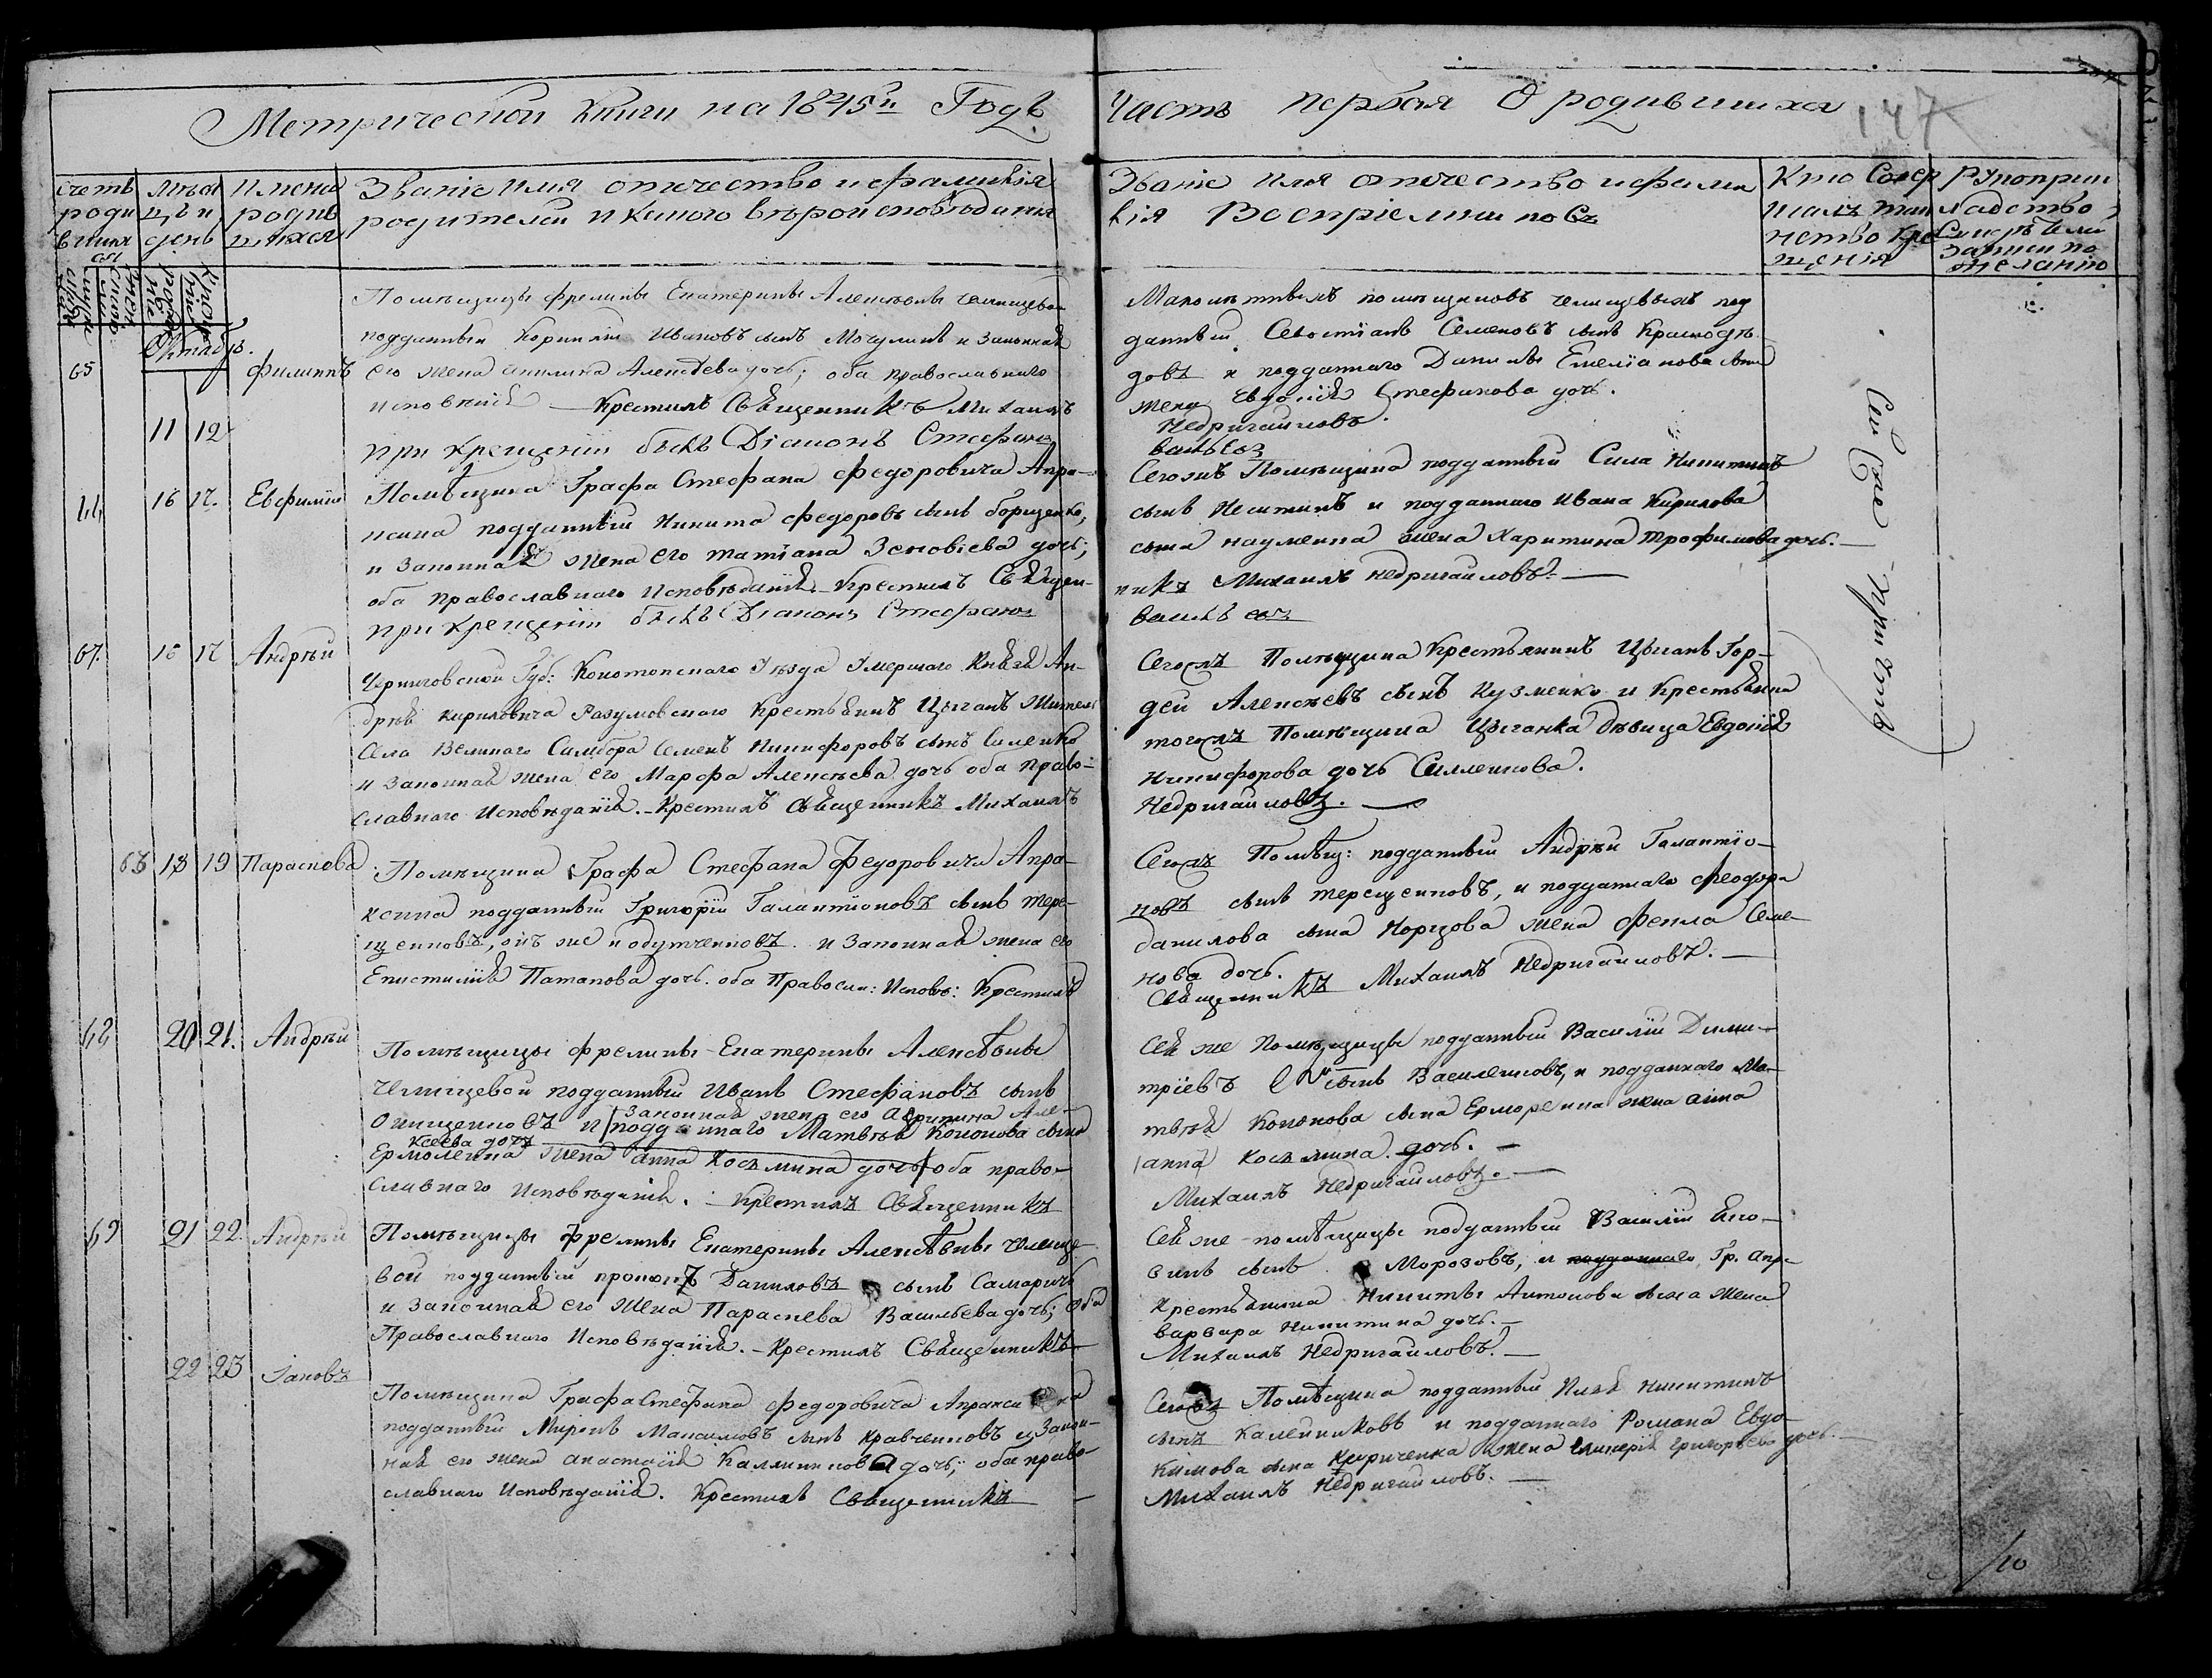 Метрической книги на 1845й Годъ
Часть первая О родившихся
147
Счетъ родившихся
Мѣсяцъ и день
Имена родившихся
Званіе имя отчество и фамилія
родителей и какого вѣроисповѣданія
Званіе имя отчество и фамилія
Воспріемниковъ
Кто Совершалъ таинство крещенія
Рукоприкладство свидѣтелей записи по желанію
Октябрь.
65 11 12 Филиппъ
Помѣщицы фрелины Екатерины Алексѣевны Челищевой
подданный Корнилій Ивановъ сынъ Мочулинъ и Законная
его жена Акилина Алексѣева дочь; оба православнаго
исповѣдія — Крестилъ Священникъ Михаилъ
при крещеніи былъ Діаконъ Стефанъ
помѣщиковъ Челищевыхъ под
данный Севостіанъ Семеновъ сынъ
довъ и подданнаго Данилы Емеліанова сына
жена Евдокія Стефанова дочь.
Недригайловъ.
16 17. Евфимій
Помѣщика Графа Стефана Федоровича Апра-
ксина подданный Никита Федоровъ сынъ Борщенко,
и Законная жена его Татіана Зеновіева дочь;
оба православнаго Исповѣданія. Крестилъ Священ-
при крещеніи былъ Діаконъ Стефанъ
Сегожъ Помѣщика подданный Сила Никитинъ
сынъ и подданнаго Ивана Кирилова
сына Науменка жена Харитина Трофимова дочь. —
никъ Михаилъ Недригайловъ. —
67. 16 17 Андрѣй
Черниговской Губ: Конотопскаго Уѣзда Умершаго Князя Ан-
дрѣя Кириловича Разумовскаго Крестьянинъ Цыганъ житель
Села Великаго Самбора Семенъ Никифоровъ сынъ Силенко
и Законная жена его Марфа Алексѣева дочь оба право-
славнаго Исповѣданія. — Крестилъ Священникъ Михаилъ
Сегожъ Помѣщика Крестьянинъ Цыганъ Гор-
дей Алексѣевъ сынъ Кузменко и Крестьянка
тогожъ Помѣщика Цыганка дѣвица Евдокія
Никифорова дочь Силленкова.
Недригайловъ. —
68 18 19 Параскева
Помѣщика Графа Стефана Федоровича Апра-
ксина подданный Григорій Галактіоновъ сынъ Тере-
щенковъ, онъ же и и Законная жена его
Епистимія Патапова дочь. оба Правосл: Исповѣ: Крестилъ
Сегожъ Помѣщ: подданный Андрѣй Галактіо-
новъ сынъ Терещенковъ, и подданнаго Феодора
Данилова сына жена Фекла Семе-
нова дочь.
Священникъ Михаилъ Недригайловъ. —
20 21. Андрѣй
Помѣщицы фрелины Екатерины Алексѣевны
Челищевой подданный Иванъ Стефановъ сынъ
Онищенковъ и законная жена его Але-
подданнаго Матвѣя Кононова сына
ксеева дочь
Ермоленка жена Анна Косьмина дочь оба право-
славнаго Исповѣданія. — Крестилъ Священникъ
Сея же Помѣщицы подданный Василій Дими-
тріевъ сынъ Василенковъ, и подданнаго Ма-
твѣя Кононова сына Ермоленка жена Анна
(Анна) Косьмина дочь. —
Михаилъ Недригайловъ. —
69 21 22. Андрѣй
Помѣщицы фрелины Екатерины Алексѣевны Челище-
вой подданный Прокопъ Даниловъ сынъ Самаричъ
и Законная его жена Параскева Васильева дочь; оба
Православнаго Исповѣданія. — Крестилъ Священникъ
Сея же помѣщицы подданный Василій
сынъ Морозовъ, и подданнаго Гр. Апр.
Крестьянина Никиты Антонова сына жена
Варвара Никитина дочь. —
Михаилъ Недригайловъ. —
22 23 Іаковъ
Помѣщика Графа Стефана Федоровича Апраксина
подданный Миронъ Максимовъ сынъ Кравченковъ и Закон-
ная его жена Анастасія Каллиникова дочь; оба право-
славнаго Исповѣданія. Крестилъ Священникъ —
Сегожъ Помѣщика подданный Илья Никитинъ
сынъ Калейниковъ и подданнаго Романа Евдо-
кимова сына Кириченка жена Гликерія Григорьева дочь. —
Михаилъ Недригайловъ. —